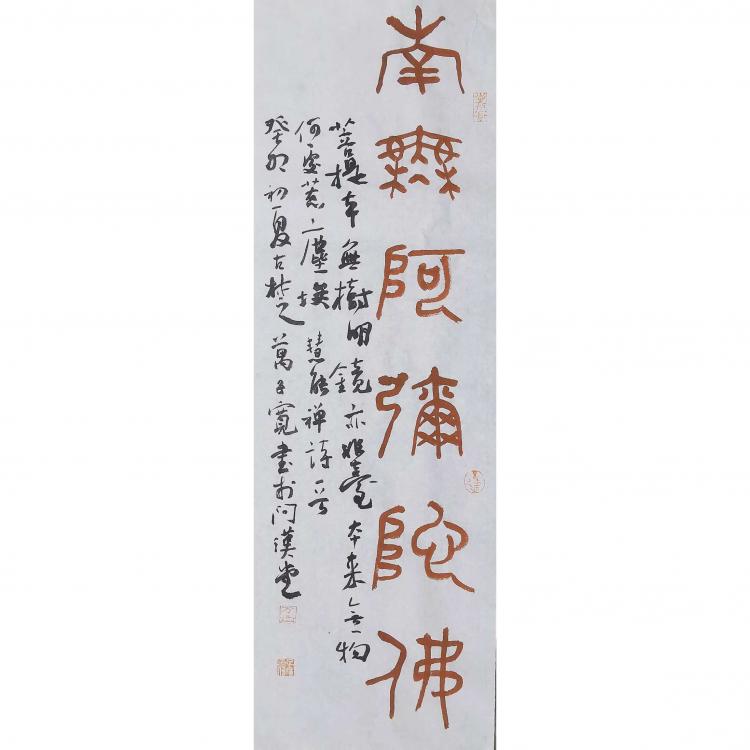 南無阿彌陀佛
菩提本無樹明鏡亦非臺本来無一物
何處惹塵埃慧能禅詩一首
癸卯初夏古楚萬子寬書於问漢堂